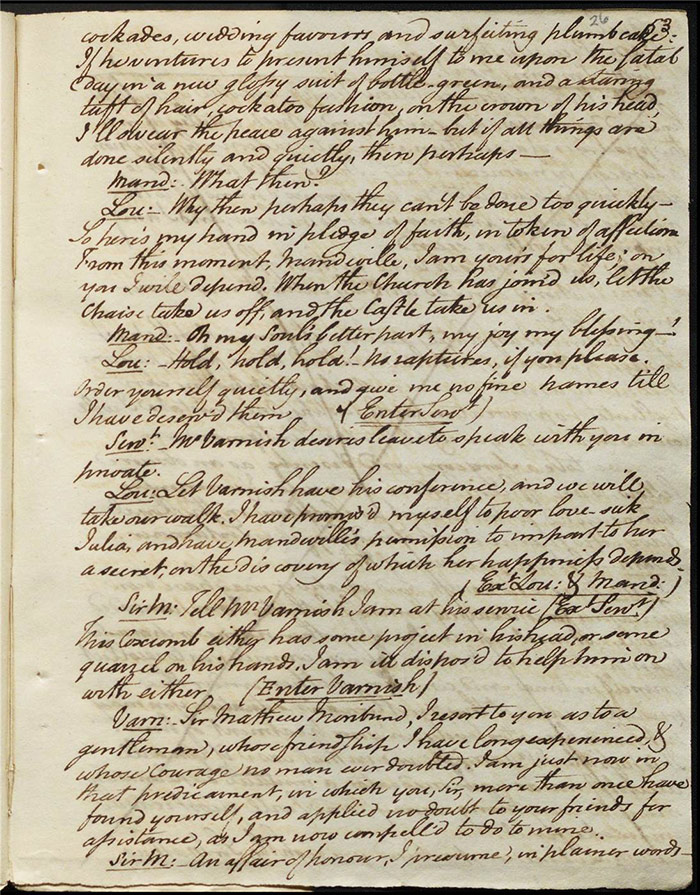 26
53
cockades, wedding favours and surfeiting plumb cake:
If he ventures to present himself to me upon the fatal
Day in a new glossy suit of bottle-green, and a staring
tuft of hair, cockatoo fashion, on the crown of his head,
I'll swear the peace against him - but if all things are
done silently and quietly, then perhaps —
Mand: - What then?
Lou: - Why then perhaps they can't be done too quickly -
So here's my hand in pledge of faith, in token of affection
From this moment, Mandeville, I am your's for life; on
you I will depend. When the Church has join'd us, let the
Chaise take us off, and the Castle take us in.
Mand: - Oh my Soul's better part, my joy my blessing -!
Lou: - Hold, hold, hold! - No raptures, if you please.
Order yourself quietly, and give me no fine names till
I have deserv'd them (Enter Servt)
Servt: - Mr Varnish desires leave to speak with you in
private.
Lou: Let Varnish have his conference, and we will
take our walk. I have promis'd myself to poor love-sick
Julia, and have Mandeville's permission to impart to her
a secret, on the discovery of which her happiness depends.
(Ext Lou: & Mand:)
Sir M: Tell Mr Varnish I am at his service (Ext Servt)
This Coxcomb either has some project in his head, or some
quarrel on his hands. I am ill dispos'd to help him on
with either (Enter Varnish)
Varn: - Sir Mathew Moribund, I resort to you as to a
gentleman, whose friendship I have long experienced, &
whose Courage no man ever doubted. I am just now in
that predicament, in which you, Sir, more than once have
found yourself, and applied no doubt to your friends for
assistance, as I am now compell'd to do to mine.
Sir M: - An affair of honour, I presume, in plainer words -